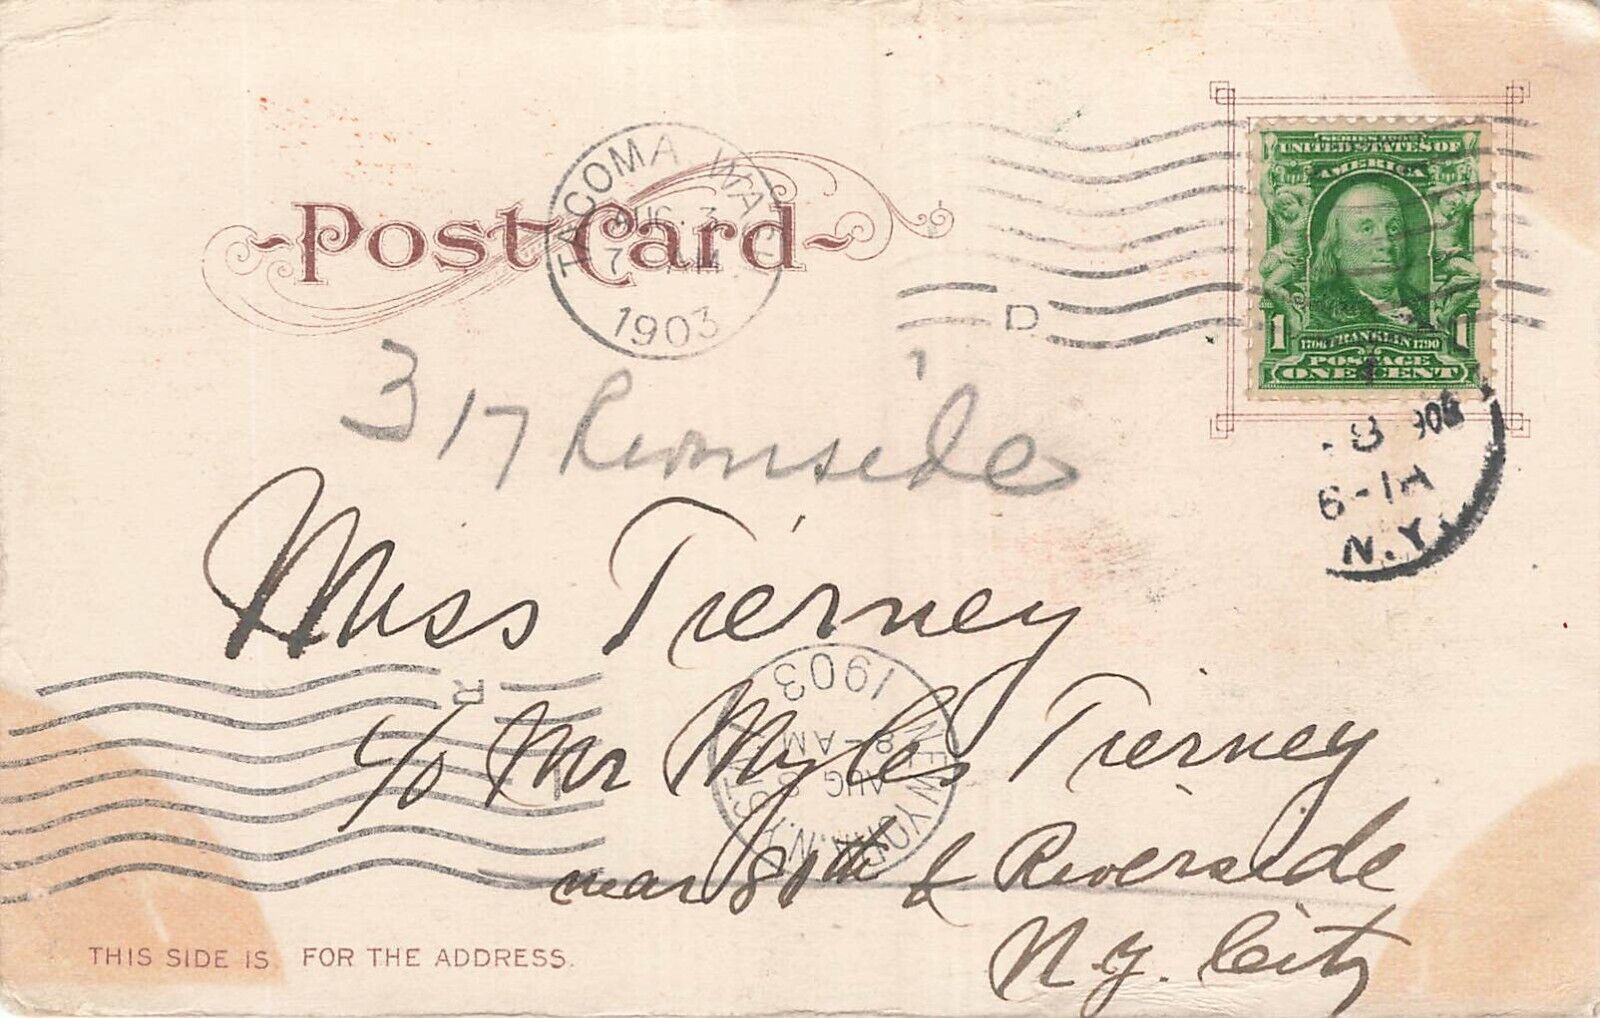 Post Card
TACOMA WASH
AUG. 3
7
1903
D
SERIES 1902
UNITED STATES OF
AMERICA
1 1706 FRANKLIN 1790 1
POSTAGE
ONE CENT
317 Riverside
6-1A
N.Y.
Miss Tierney
c/o Mr Myles Tierney
near 80th & Riverside
N.Y. City
R
NEW YORK, N.Y. STA.
AUG 8
8-AM
1903
THIS SIDE IS FOR THE ADDRESS.